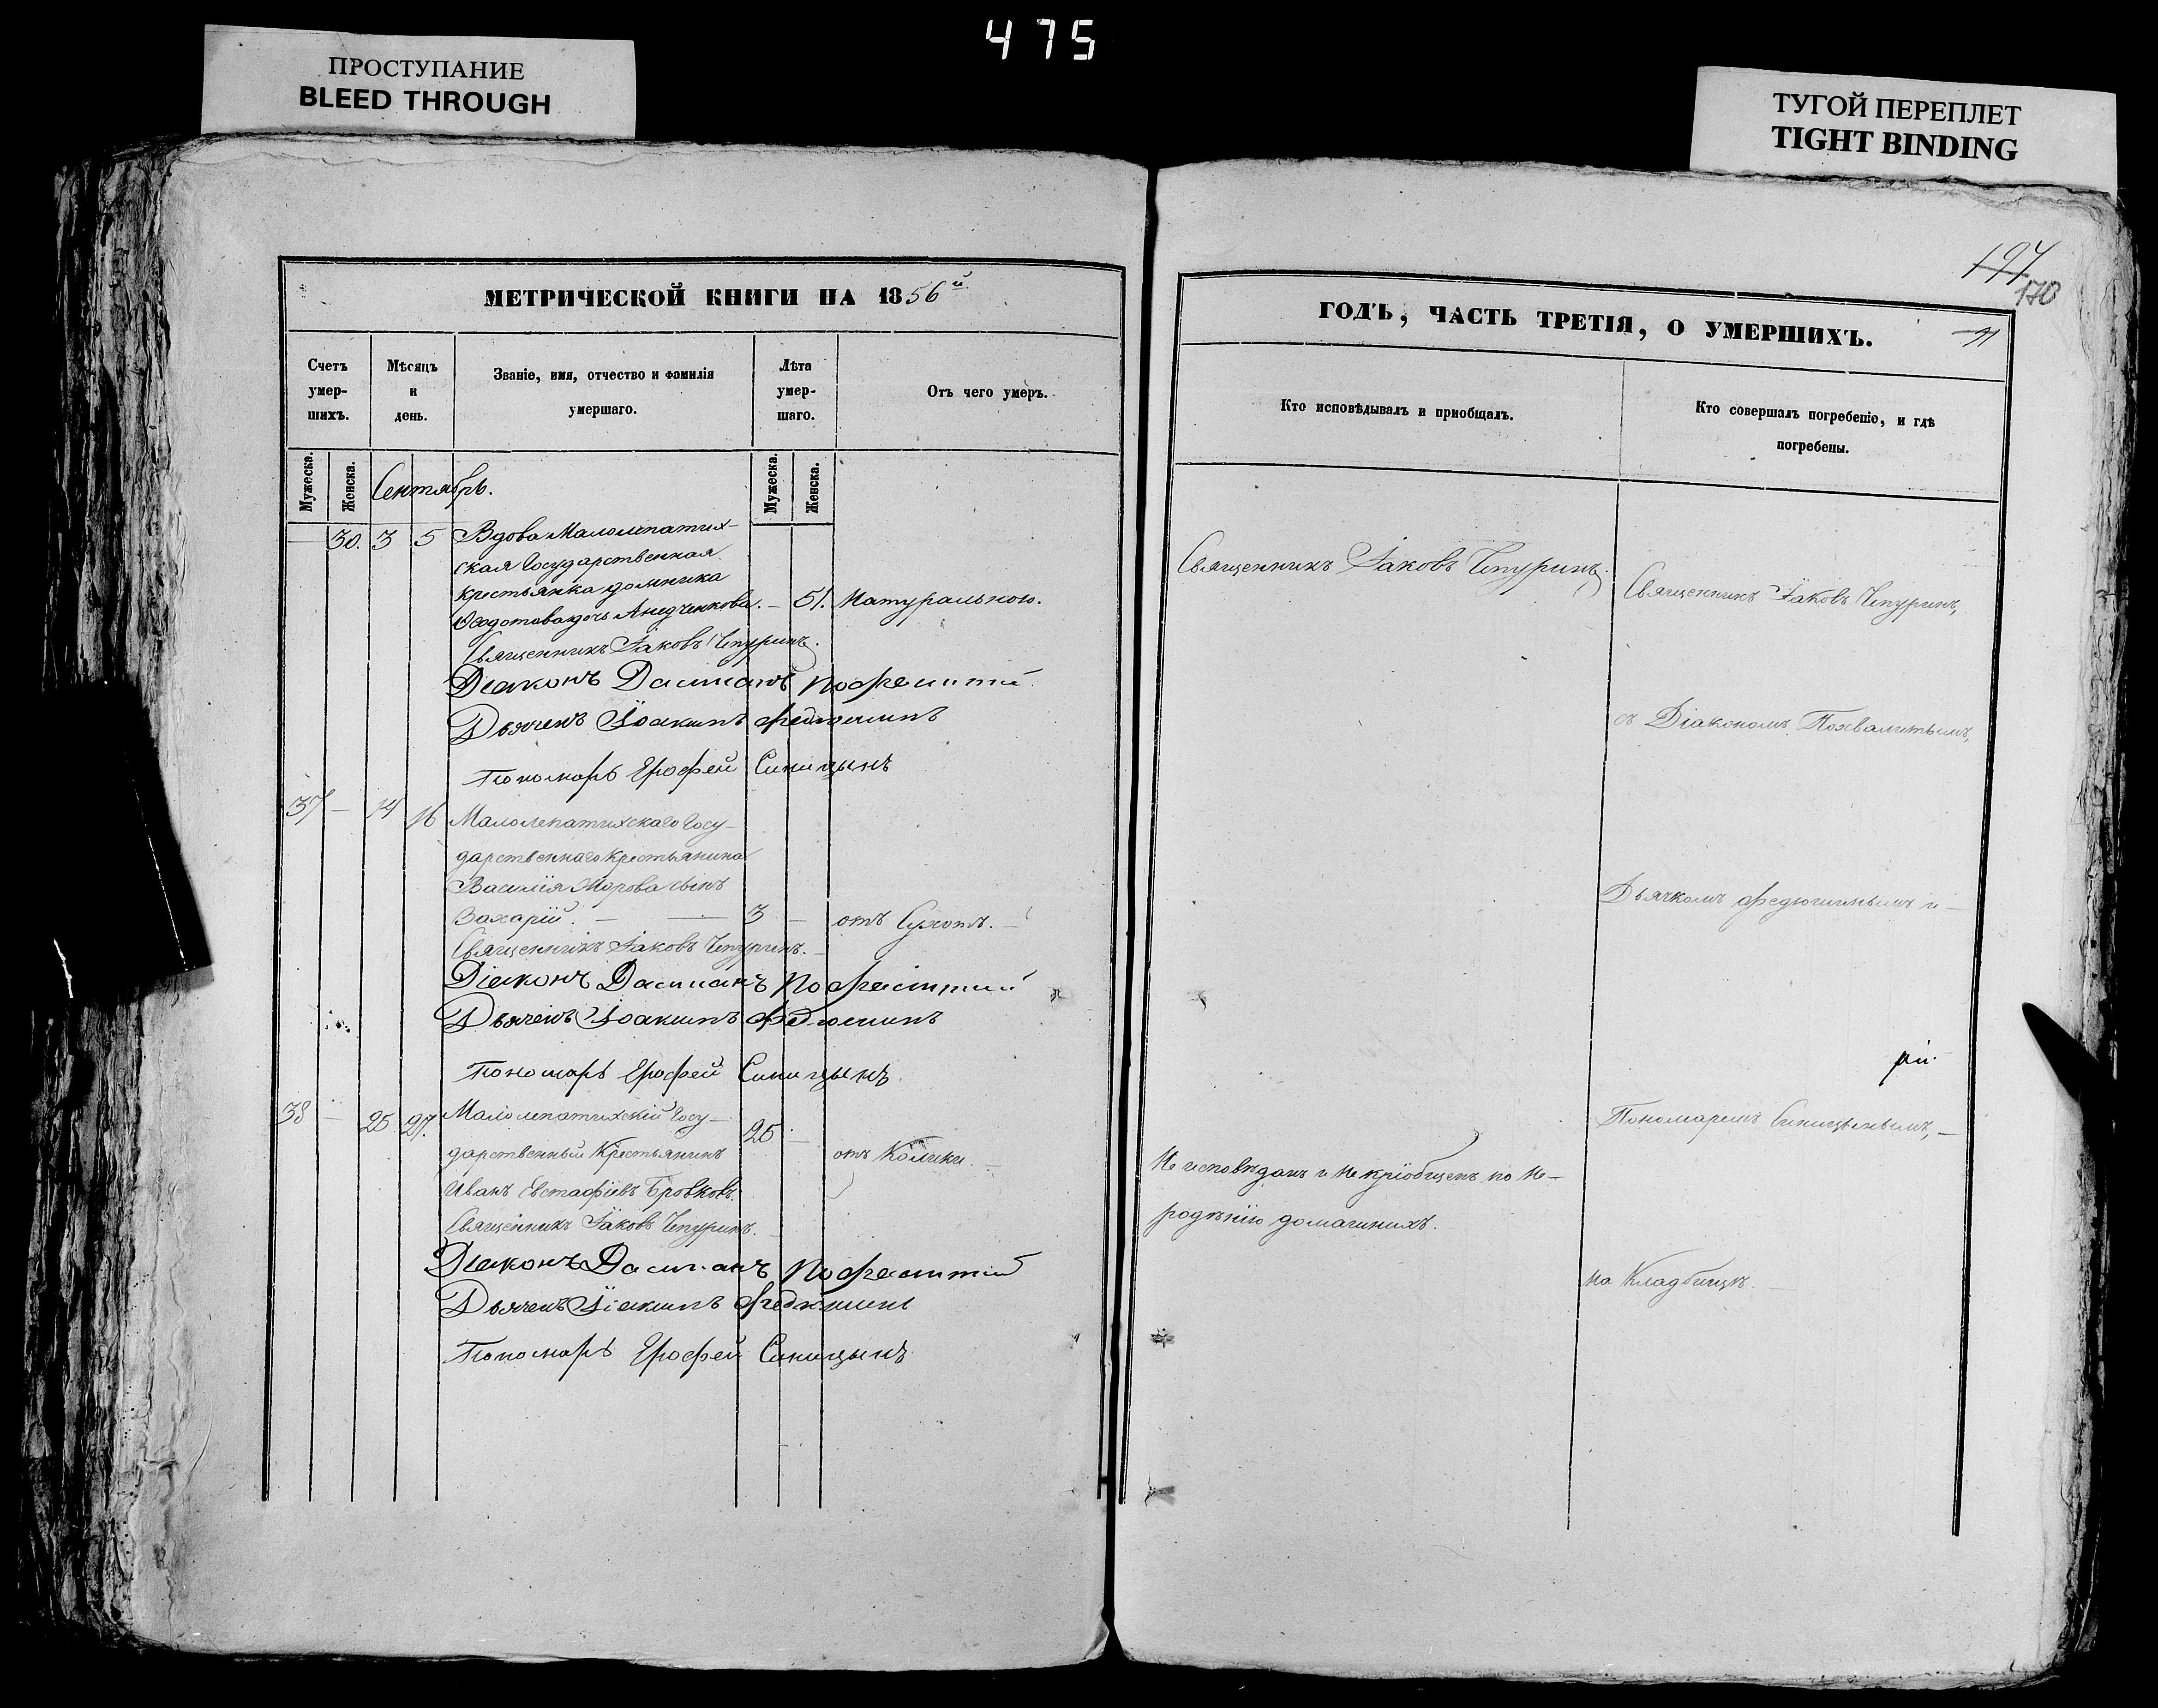 475
ПРОСТУПАНИЕ
BLEED THROUGH
ТУГОЙ ПЕРЕПЛЕТ
TIGHT BINDING
МЕТРИЧЕСКОЙ КНИГИ НА 1856й
Счетъ умер-шихъ.
Мѣсяцъ и день.
Званіе, имя, отчество и фамилія умершаго.
Лѣта умер-шаго.
Отъ чего умеръ.
Мужеска. Женска.
Сентябрь.
Мужеска. Женска.
30. 3 5 Вдова Малолепатих-
ская Государственная
крестьянка домника
Ѳедотова дочь — 51. Натуральною.
Священникъ Іаковъ Чепуринъ.
Діаконъ Даміанъ
Дьячекъ Іоакимъ Федюшинъ
Пономарь Ерофей Синицынъ
37 — 14 16 Малолепатихскаго Госу-
дарственнаго Крестьянина
Василія Морова сынъ
Захарій. — 3 — отъ Сухотъ.
Священникъ Іаковъ Чепуринъ.
Діаконъ Даміанъ
Дьячекъ Іоакимъ Федюшинъ
Пономарь Ерофей Синицынъ
38 — 25 27. Малолепатихскій Госу-
дарственный Крестьянинъ 25 — отъ Колики.
Иванъ Евстафіевъ Бровковъ.
Священникъ Іаковъ Чепуринъ.
Діаконъ Даміанъ
Дьячекъ Іоакимъ Федюшинъ
Пономарь Ерофей Синицынъ
197
170
ГОДЪ, ЧАСТЬ ТРЕТІЯ, О УМЕРШИХЪ.
Кто исповѣдывалъ и пріобщалъ.
Кто совершалъ погребеніе, и гдѣ
погребены.
Священникъ Іаковъ Чепуринъ.
Священникъ Іаковъ Чепуринъ,
съ Діакономъ Похвалитымъ,
Дьячкомъ Федюшинымъ и —
Пономаремъ Синицынымъ, —
Не исповѣданъ и не пріобщенъ по не-
родѣнію домашнихъ.
на Кладбищѣ.